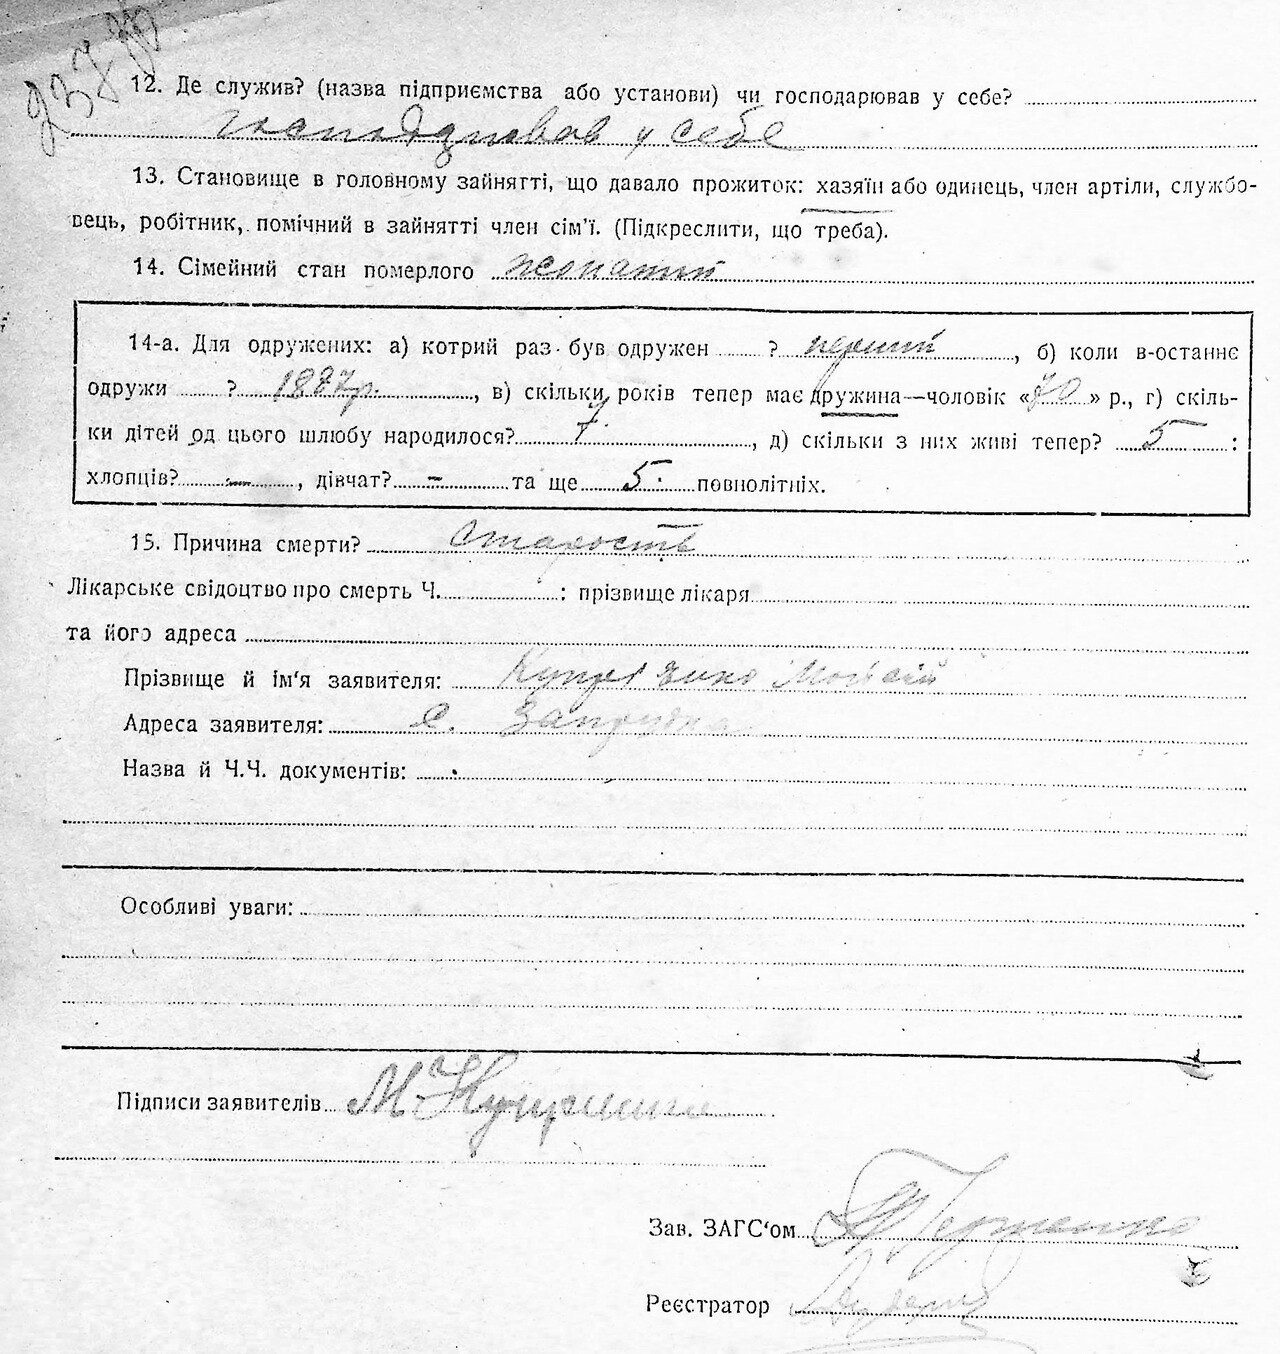 12. Де служив? (назва підприємства або установи) чи господарював у себе?
господарював у себе
13. Становище в головному зайнятті, що давало прожиток: хазяїн або одинець, член артіли, службо-
вець, робітник, помічний в зайнятті член сім'ї. (Підкреслити, що треба).
14. Сімейний стан померлого жонатий
14-а. Для одружених: а) котрий раз був одружен ? перший, б) коли в-останнє
одружи ? 1887р., в) скільки років тепер має дружина—чоловік «70» р., г) скіль-
ки дітей од цього шлюбу народилося? 7, д) скільки з них живі тепер? 5 :
хлопців? —, дівчат? — та ще 5. повнолітніх.
15. Причина смерти? старость
Лікарське свідоцтво про смерть Ч. : прізвище лікаря
та його адреса
Прізвище й ім'я заявителя: Мойсій
Адреса заявителя: с. Запрудка
Назва й Ч.Ч. документів:
Особливі уваги:
Підписи заявителів М.
Зав. ЗАГС'ом
Реєстратор